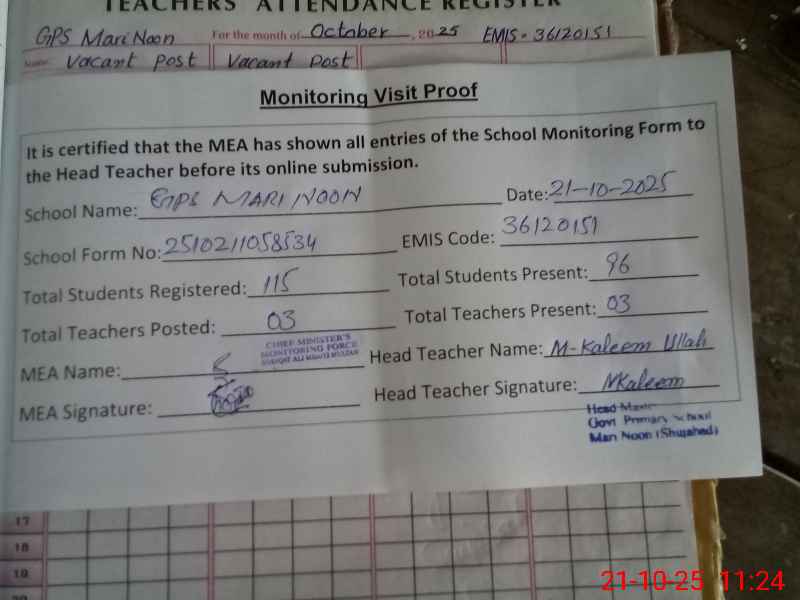 TEACHERS' ATTENDANCE REGISTER
GPS Mari Noon For the month of October, 2025 EMIS - 36120151
Name Vacant Post Vacant Post
Monitoring Visit Proof
It is certified that the MEA has shown all entries of the School Monitoring Form to
the Head Teacher before its online submission.
School Name: GPS MARI NOON Date: 21-10-2025
School Form No: 2510211058534 EMIS Code: 36120151
Total Students Registered: 115 Total Students Present: 96
Total Teachers Posted: 03 Total Teachers Present: 03
CHIEF MINISTER'S
MONITORING FORCE
MEA Name: Head Teacher Name: M-Kaleem Ullah
MEA Signature: Head Teacher Signature: MKaleem
Head
Govt Primary School
Mari Noon (Shujabad)
17
18
19
21-10-25 11:24